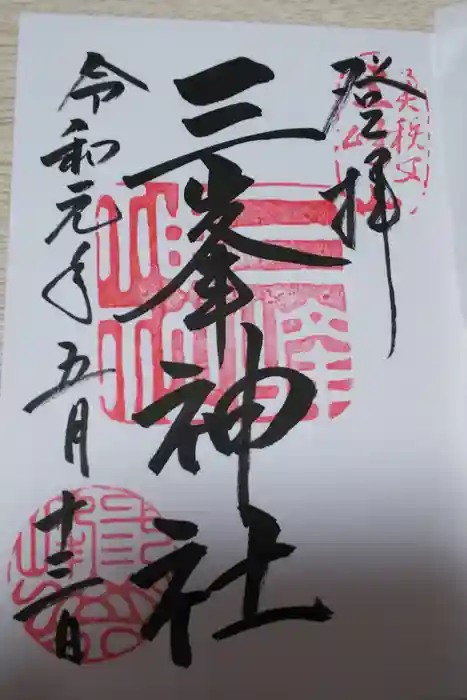 登拝
三峯神社
令和元年五月十二日
奥秩父